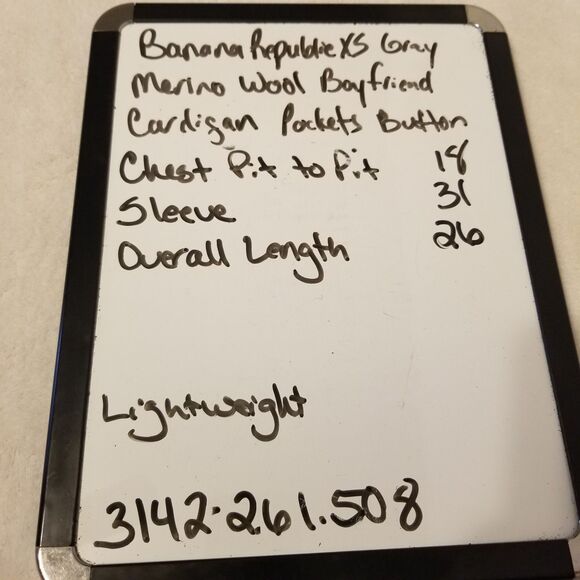 Banana Republic XS Gray
Merino Wool Boyfriend
Cardigan Pockets Button
Chest Pit to Pit 18
Sleeve 31
Overall Length 26
Lightweight
3142.261.508